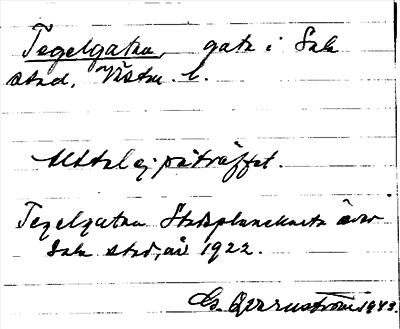 Tegelgatan, gata i Sala
stad, Västm. l.
Uttal ej påträffat.
Tegelgatan Stadsplanekarta över
Sala stad, år 1922.
G. Qvarnström 1943.